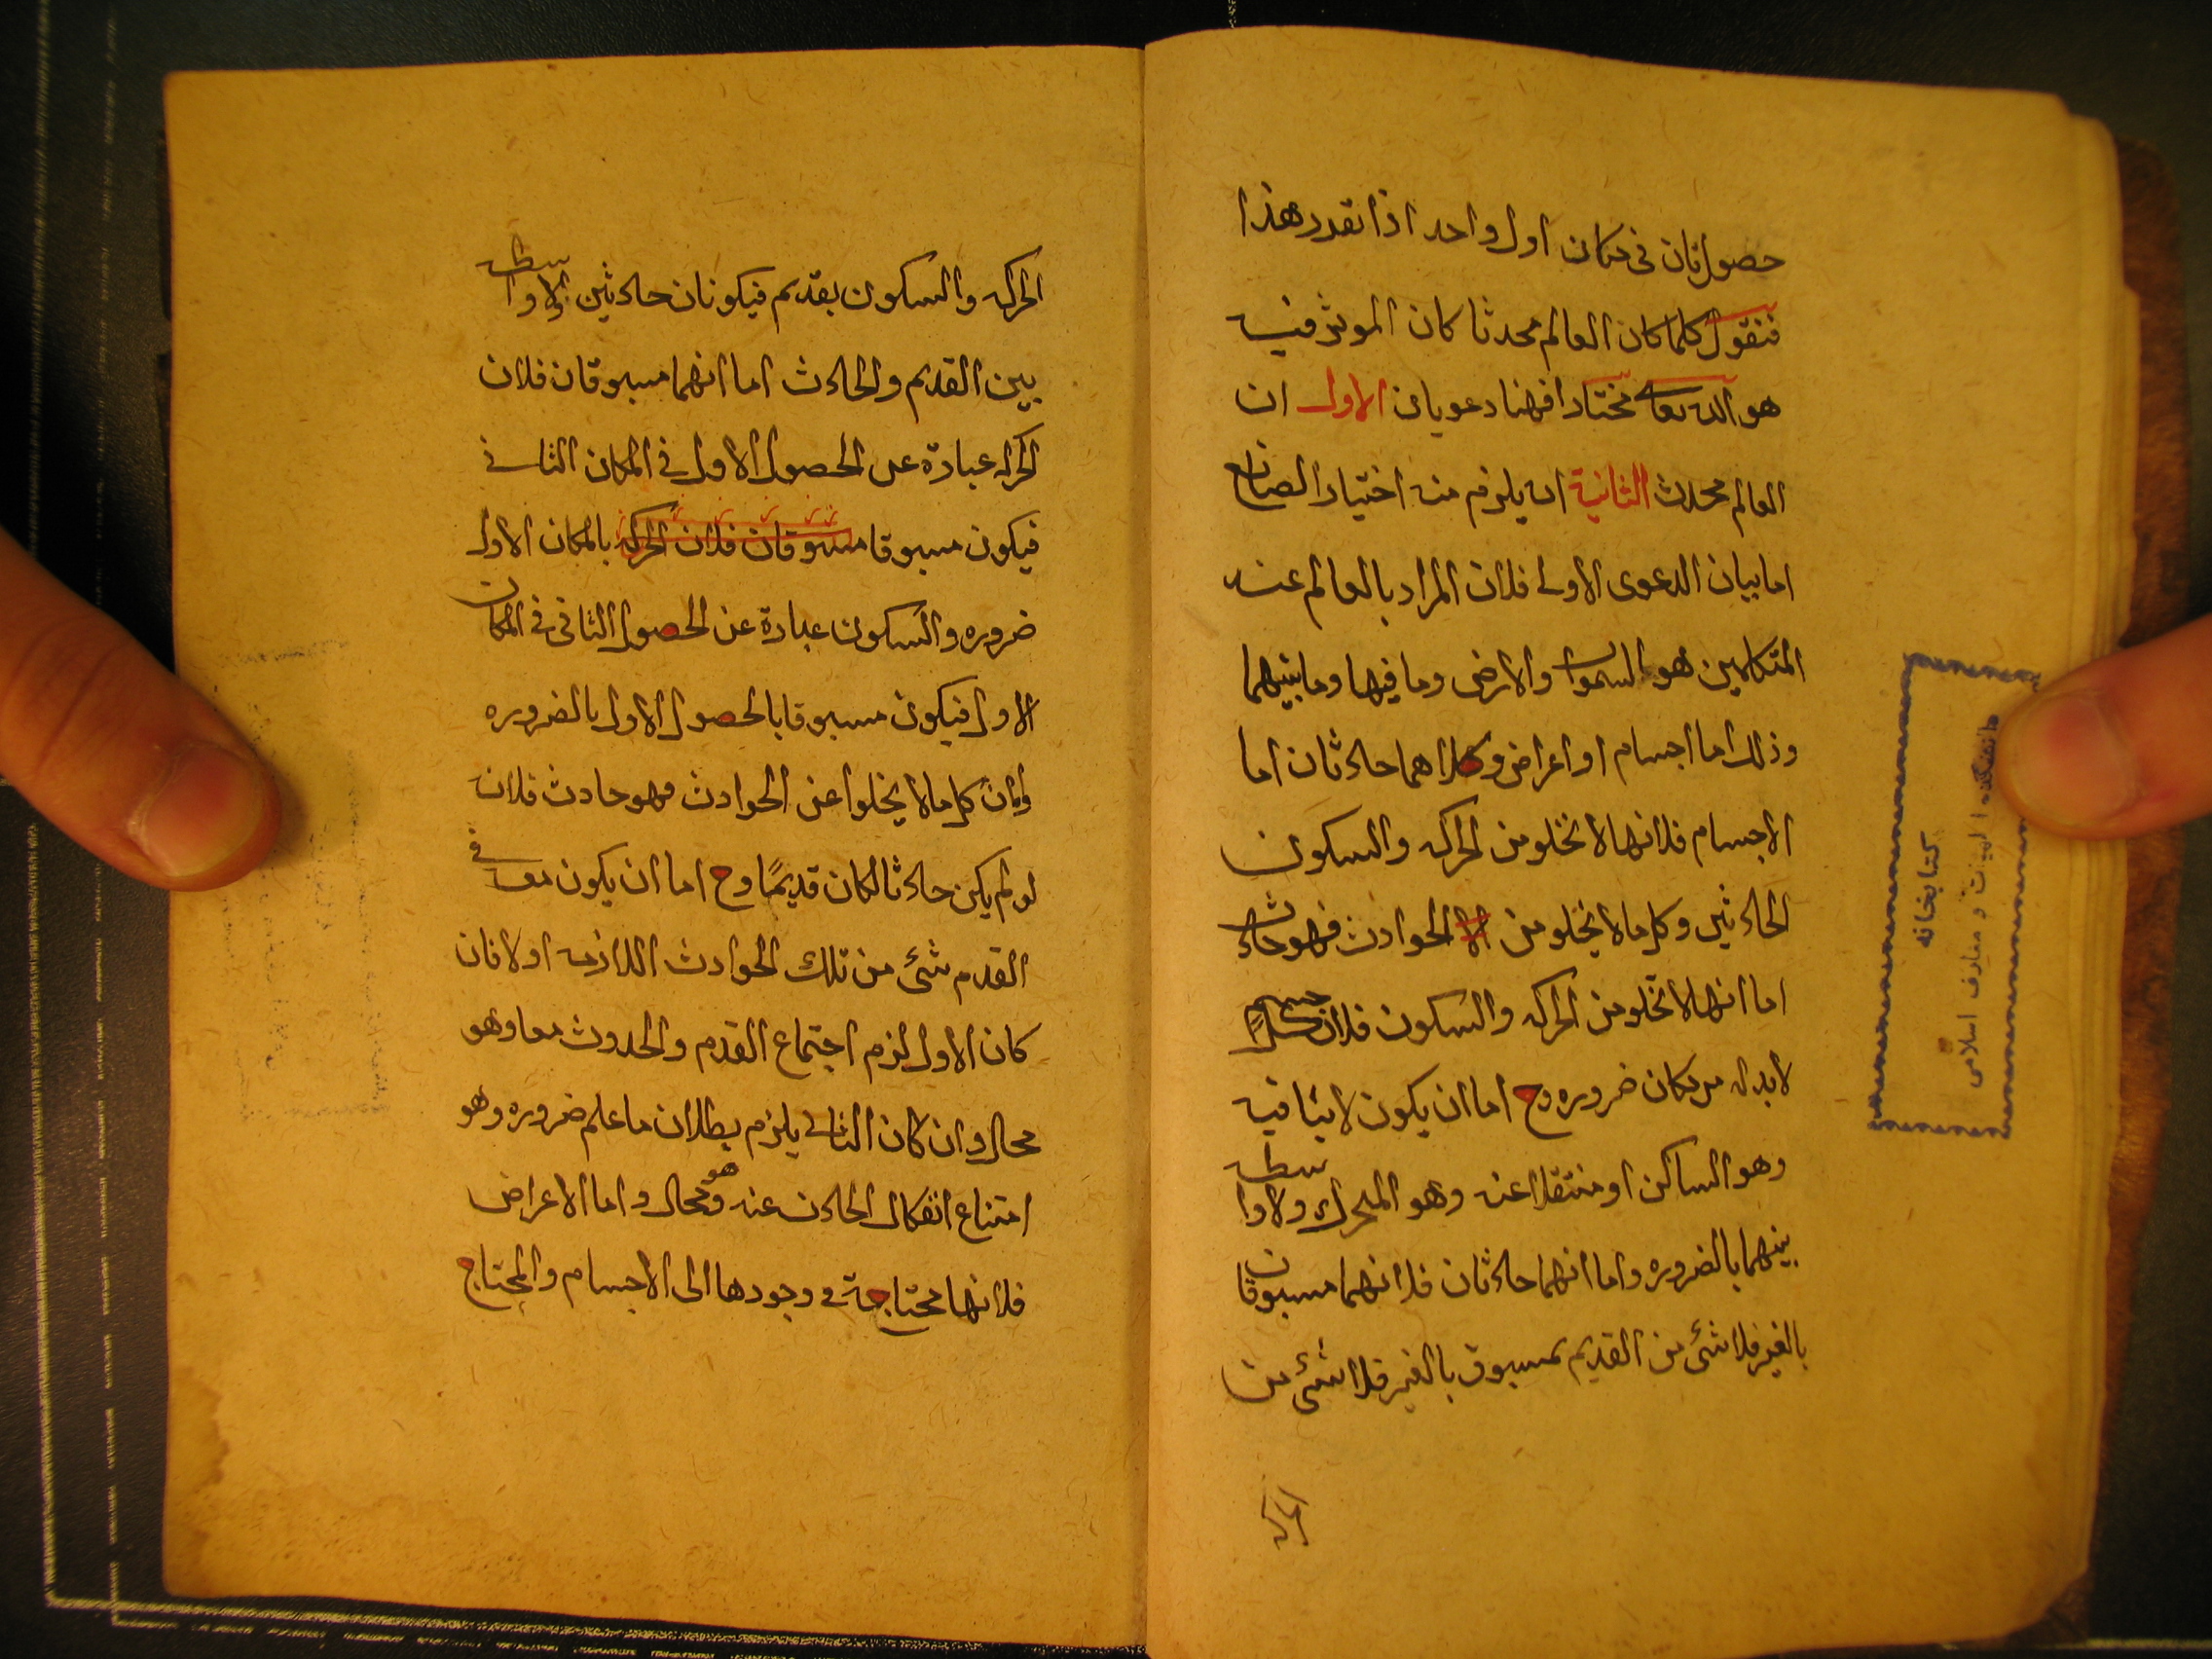 حصول ثان فى مكان اول واحد اذا تقرر هذا
فنقول كلما كان العالم محدثا كان الموثر فيه
هو الله تعالى مختارا فهنا دعويان الاول ان
العالم محدث الثانية ان يلزم منه اختيار الصانع
اما بيان الدعوى الاولى فلان المراد بالعالم عند
المتكلمين هو السموات والارض وما فيها وما بينهما
وذلك اما اجسام او اعراض وكلاهما حادثان اما
الاجسام فلانها لا تخلو من الحركه والسكون
الحادثين وكل ما لا يخلو من الا الحوادث فهو حادث
اما انها لا تخلو من الحركه والسكون فلان كل جسم
لابد له من مكان ضروره وح اما ان يكون لابثا فيه
وهو الساكن او منتقلا عنه وهو المتحرك ولا واسطه
بينهما بالضروره واما انهما حادثان فلانهما مسبوقان
بالغير فلا شئ من القديم بمسبوق بالغير فلا شئ من
الحركه
دانشكده الهيات و معارف اسلامى
كتابخانه
الحركه والسكون بقديم فيكونان حادثين ولا واسطه
بين القديم والحادث اما انهما مسبوقان فلان
الحركه عبارة عن الحصول الاول فى المكان الثانى
فيكون مسبوقا مسبوقان فلان الحركه بالمكان الاول
ضروره والسكون عبارة عن الحصول الثانى فى المكان
الاول فيكون مسبوقا بالحصول الاول بالضروره
وامان كل ما لا يخلوا عن الحوادث فهو حادث فلانه
لو لم يكن حادثا لكان قديمًا وح اما ان يكون معه فى
القدم شئ من تلك الحوادث اللازمه او لا فان
كان الاول لزم اجتماع القدم والحدوث معا وهو
محال وان كان الثانى يلزم بطلان ما علم ضروره وهو
امتناع انفكاك الحادث عنه وهو محال واما الاعراض
فلانها محتاجة فى وجودها الى الاجسام والمحتاج